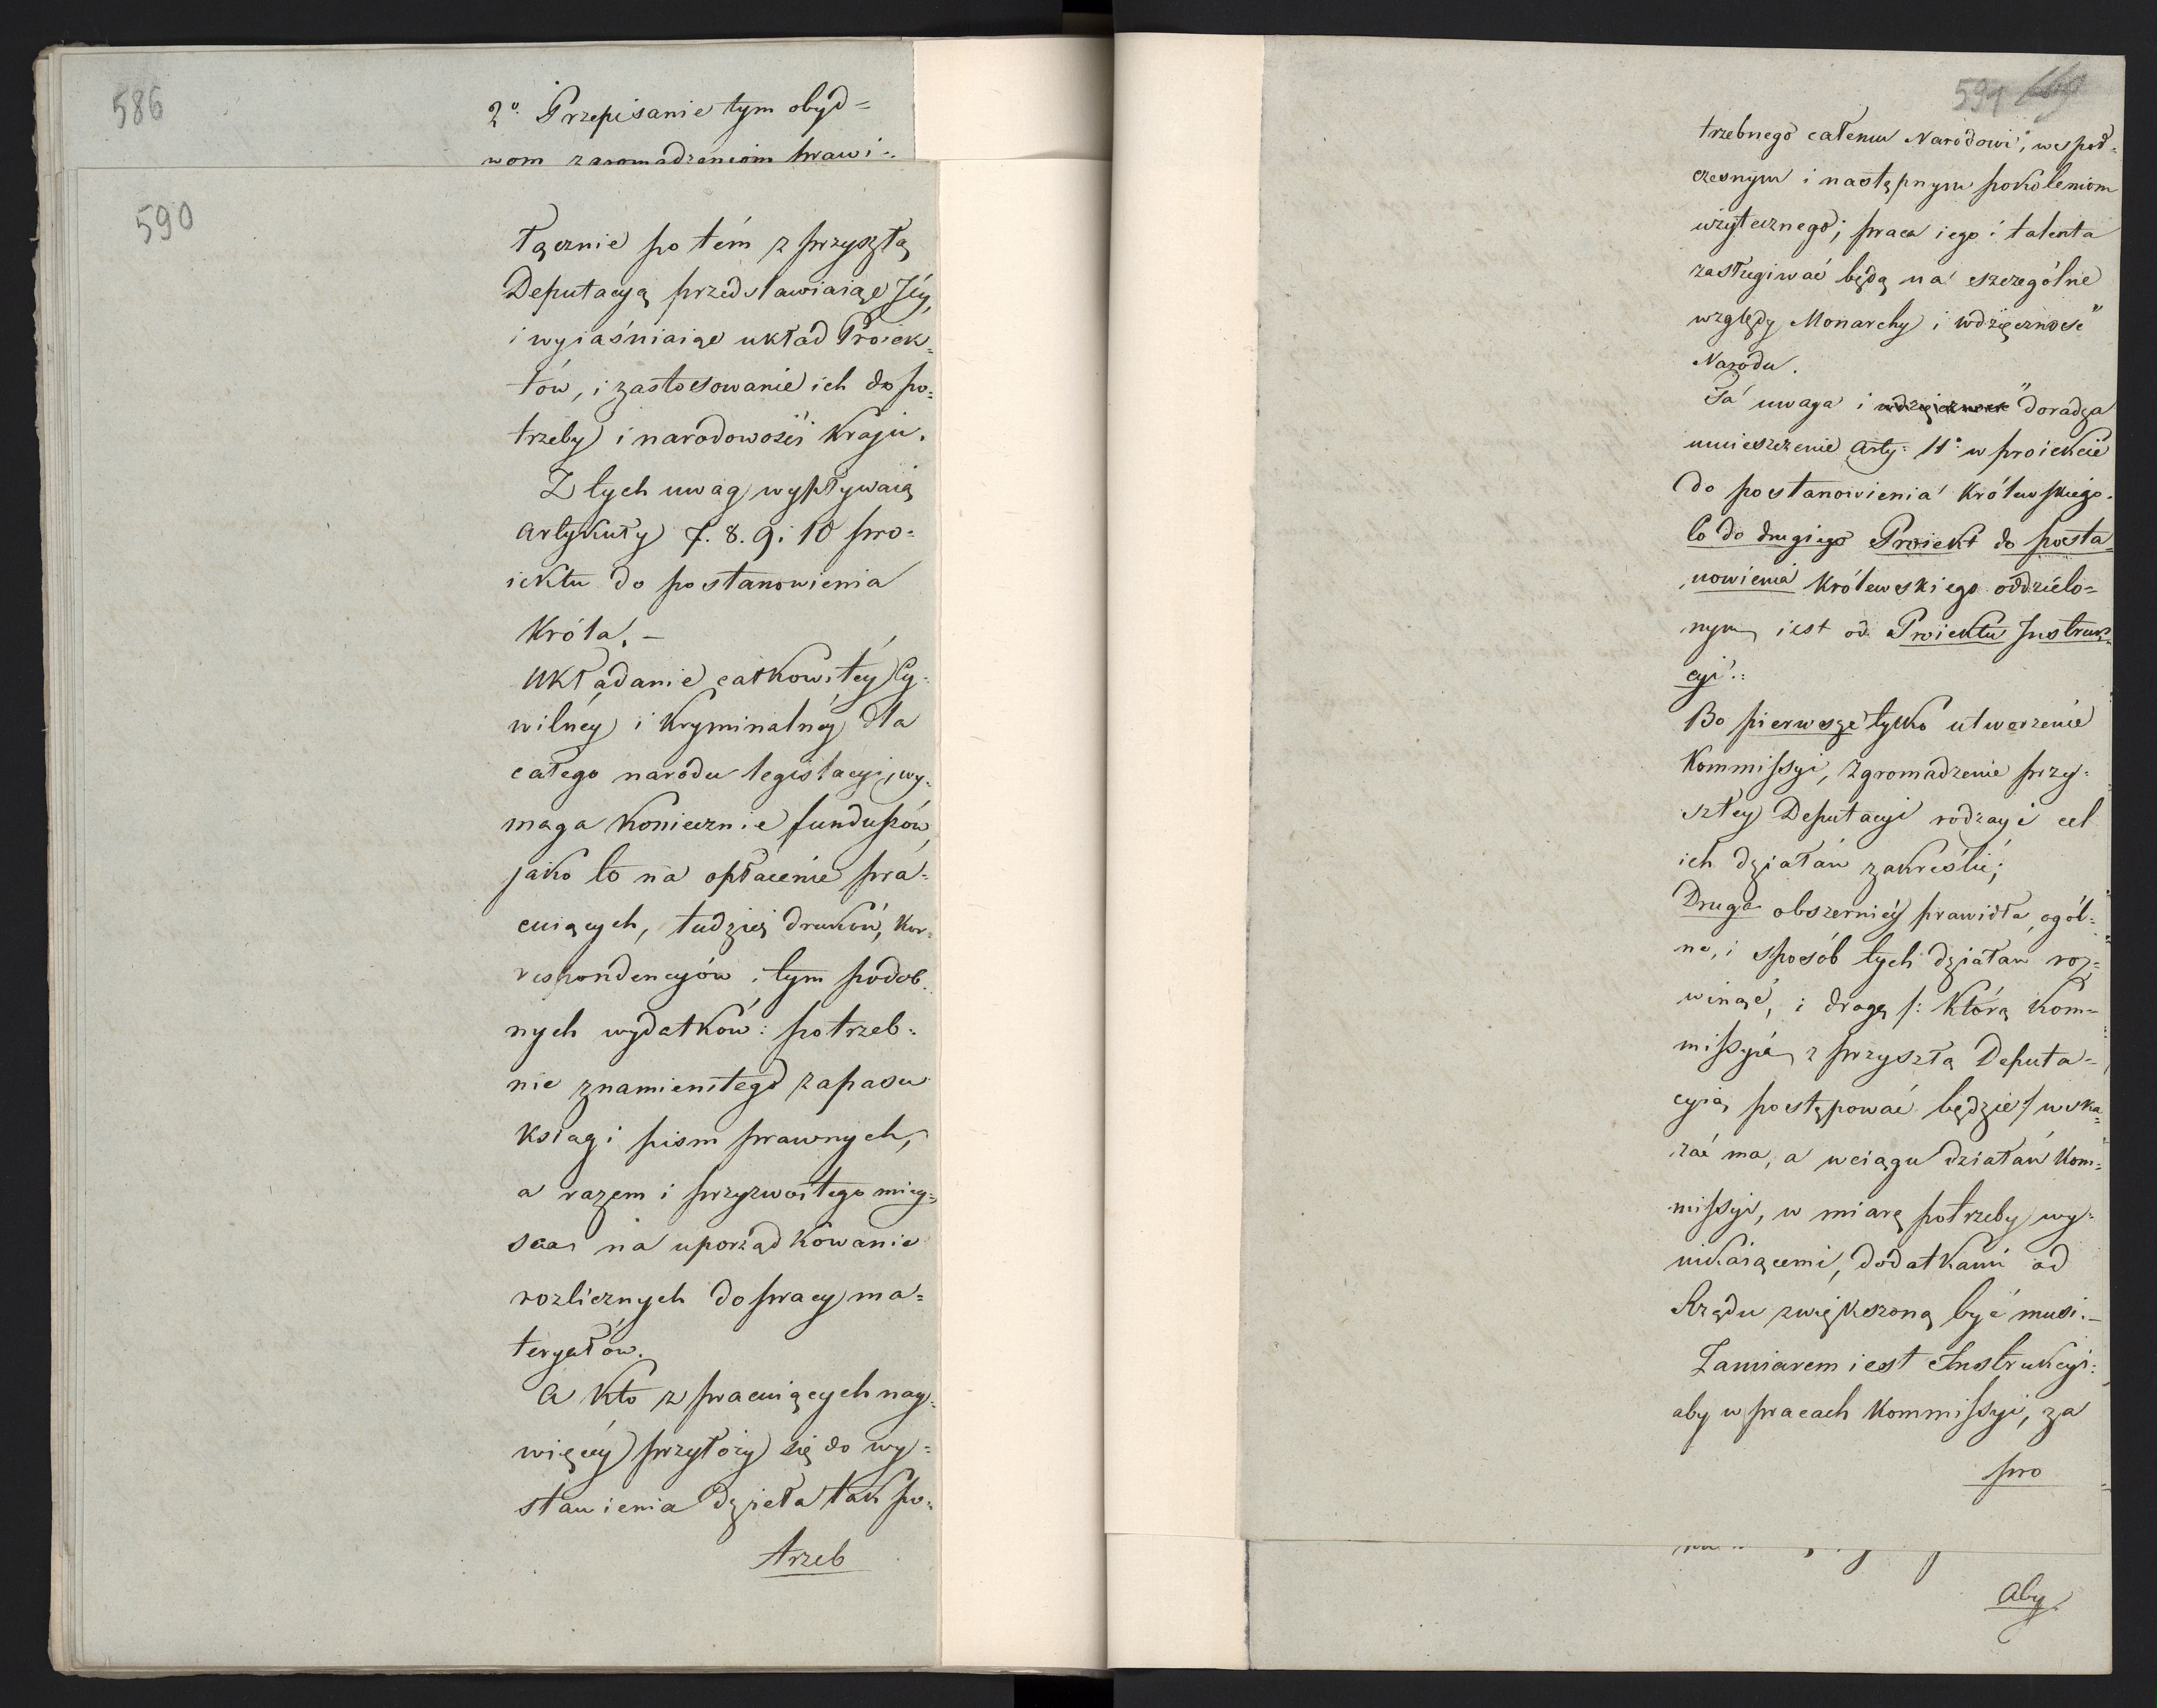 586
2o. Przepisanie tym obyd=
wom zgromadzeniom prawi=
590
łącznie potém z przyszłą
Deputacyą przedstawiaiąc Jéy,
i wyiaśniaiąc układ Proiek=
tów, i zastosowanie ich do po=
trzeby i narodowości Kraju.
Z tych uwag wypływaią
artykuły 7. 8. 9. i 10 pro=
iektu do postanowienia
Króla. –
Układanie całkowitéy Cy=
wilnéy i Kryminalnéy dla
całego narodu legislacyi, wy=
maga koniecznie funduszów,
jako to na opłacenie pra=
cuiących, tudzież druków, kor=
respondencyów i tym podob=
nych wydatków: potrzeb=
nie znamienitego zapasu
ksiąg i pism prawnych,
a razem i przyzwoitego miey=
sca na uporządkowanie
rozlicznych do pracy ma=
teryałów.
A kto z pracuiących nay=
więcéy przyłoży się do wy=
stawienia dzieła tak po=
trzeb
591
trzebnego całemu Narodowi, wspoł=
czesnym i następnym pokoleniom
użytecznego; praca iego i talenta
zasługiwać będą na szczególne
względy Monarchy i wdzięczność
Narodu.
Ta uwaga i wdzięczność doradza
umieszczenie arty: 11o. w proiekcie
do postanowienia Królewskiego.
Co do drugiego Proiekt do posta=
nowienia Królewskiego oddzielo=
nym iest od Proiektu Instruk=
cyi:
Bo pierwsze tylko utworzenie
Kommissyi, Zgromadzenie przy=
szłey Deputacyi rodzay i cel
ich działań zakreślić;
Druga obszerniéy prawidła, ogól=
ne, i sposób tych działań roz=
winąć, i drogę /: którą Kom=
missyia z przyszłą Deputa=
cyią postępować będzie :/ wska=
zać ma, a w ciągu działań Kom=
missyi, w miarę potrzeby wy=
nikaiącemi, dodatkami od
Rządu zwiększoną być musi. –
Zamiarem iest Instrukcyi:
aby w pracach Kommissyi, za
pro
Aby